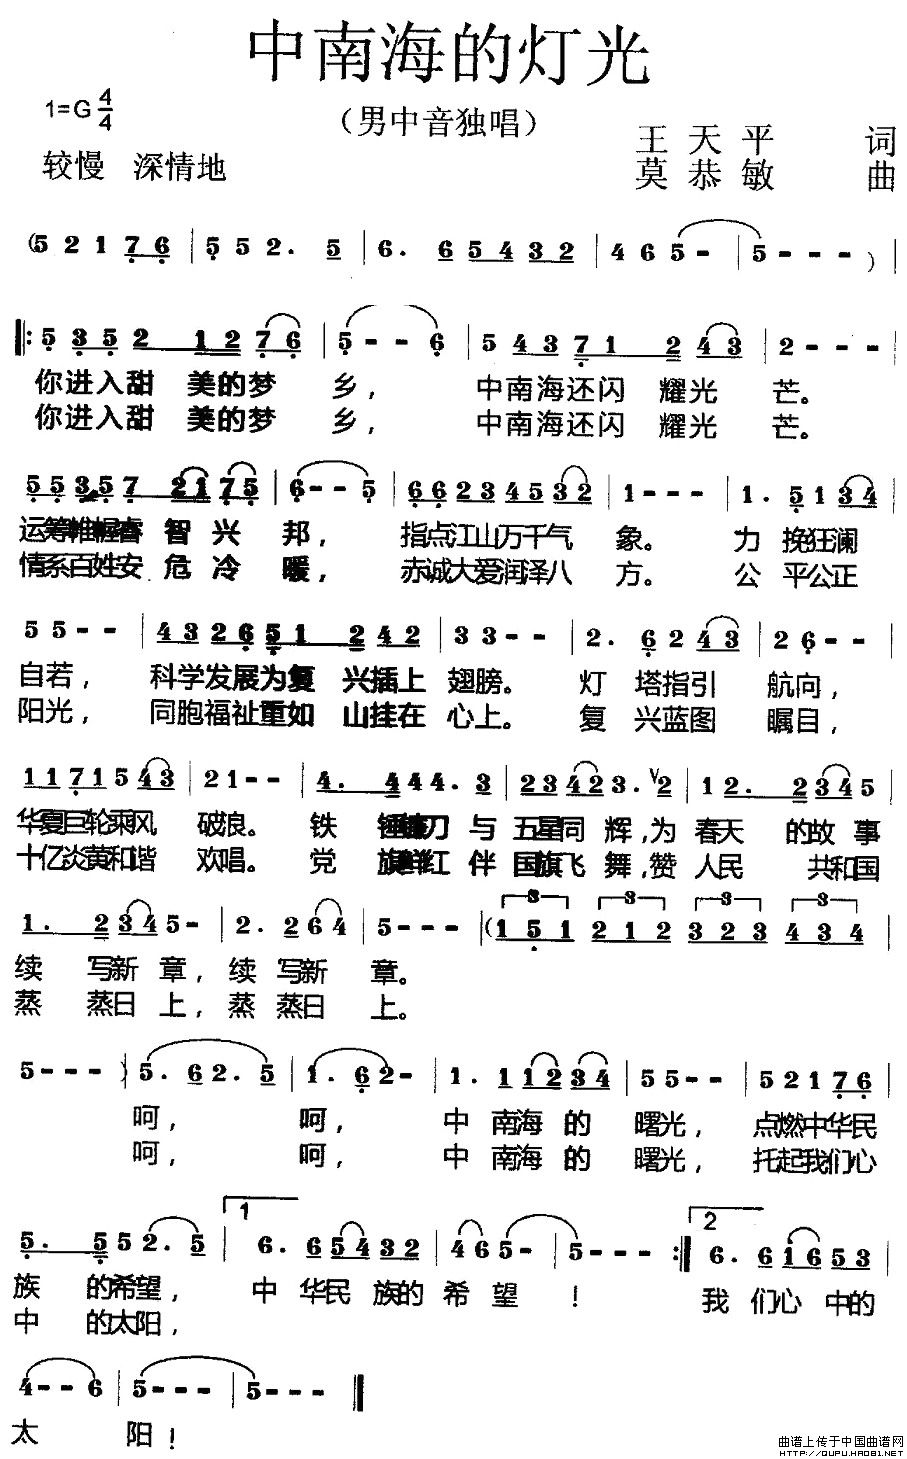 中南海的灯光
1=G 4/4
（男中音独唱）
王天平 词
较慢 深情地
莫恭敏 曲
(5 2 1 7 6 | 5 5 2. 5 | 6. 6 5 4 3 2 | 4 6 5 - | 5 - - - ) |
|: 5 3 5 2 1 2 7 6 | 5 - - 6 | 5 4 3 7 1 2 4 3 | 2 - - - |
你进入甜 美的梦 乡， 中南海还闪 耀光 芒。
你进入甜 美的梦 乡， 中南海还闪 耀光 芒。
5 5 3 5 7 2 1 7 5 | 6 - - 5 | 6 6 2 3 4 5 3 2 | 1 - - - | 1. 5 1 3 4 |
运筹帷幄睿 智 兴 邦， 指点江山万千气 象。 力 挽狂澜
情系百姓安 危 冷 暖， 赤诚大爱润泽八 方。 公 平公正
5 5 - - | 4 3 2 6 5 1 2 4 2 | 3 3 - - | 2. 6 2 4 3 | 2 6 - - |
自若， 科学发展为复 兴插上 翅膀。 灯 塔指引 航向，
阳光， 同胞福祉重如 山挂在 心上。 复 兴蓝图 瞩目，
1 1 7 1 5 4 3 | 2 1 - - | 4. 4 4 4. 3 | 2 3 4 2 3. V 2 | 1 2. 2 3 4 5 |
华夏巨轮乘风 破浪。 铁 锤镰刀 与 五星同 辉，为 春天 的故 事
十亿炎黄和谐 欢唱。 党 旗鲜红 伴 国旗飞 舞，赞 人民 共和国
1. 2 3 4 5 - | 2. 2 6 4 | 5 - - - | (1 5 1 2 1 2 3 2 3 4 3 4 |
续 写新 章，续 写新 章。
蒸 蒸日 上，蒸 蒸日 上。
5 - - - ) | 5. 6 2. 5 | 1. 6 2 - | 1. 1 1 2 3 4 | 5 5 - - | 5 2 1 7 6 |
呵， 呵， 中 南海 的 曙光， 点燃中华民
呵， 呵， 中 南海 的 曙光， 托起我们心
5. 5 5 2. 5 | 1 6. 6 5 4 3 2 | 4 6 5 - | 5 - - - :| 2 6. 6 1 6 5 3 |
族 的希望， 中 华民 族的 希 望 ！ 我 们心 中的
中 的太阳，
4 - - 6 | 5 - - - | 5 - - - ‖
太 阳！
曲谱上传于中国曲谱网
HTTP://QUPU.HAO81.NET